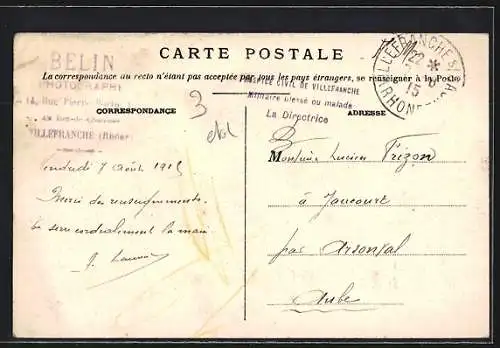 BELIN
PHOTOGRAPHE
14, Rue Pierre
Au Rez-de-Chaussée
VILLEFRANCHE (Rhône)
CARTE POSTALE
La correspondance au recto n'étant pas acceptée par tous les pays étrangers, se renseigner à la Poste
HOSPICE CIVIL DE VILLEFRANCHE
Militaire blessé ou malade
La Directrice
VILLEFRANCHE S/ SA
22 *
8
15
RHONE
CORRESPONDANCE
3
Vendredi 7 Août 1915
Merci des renseignements.
Te serre cordialement la main
ADRESSE
Monsieur Lucien Frizon
à Jaucourt
par Arsonval
Aube